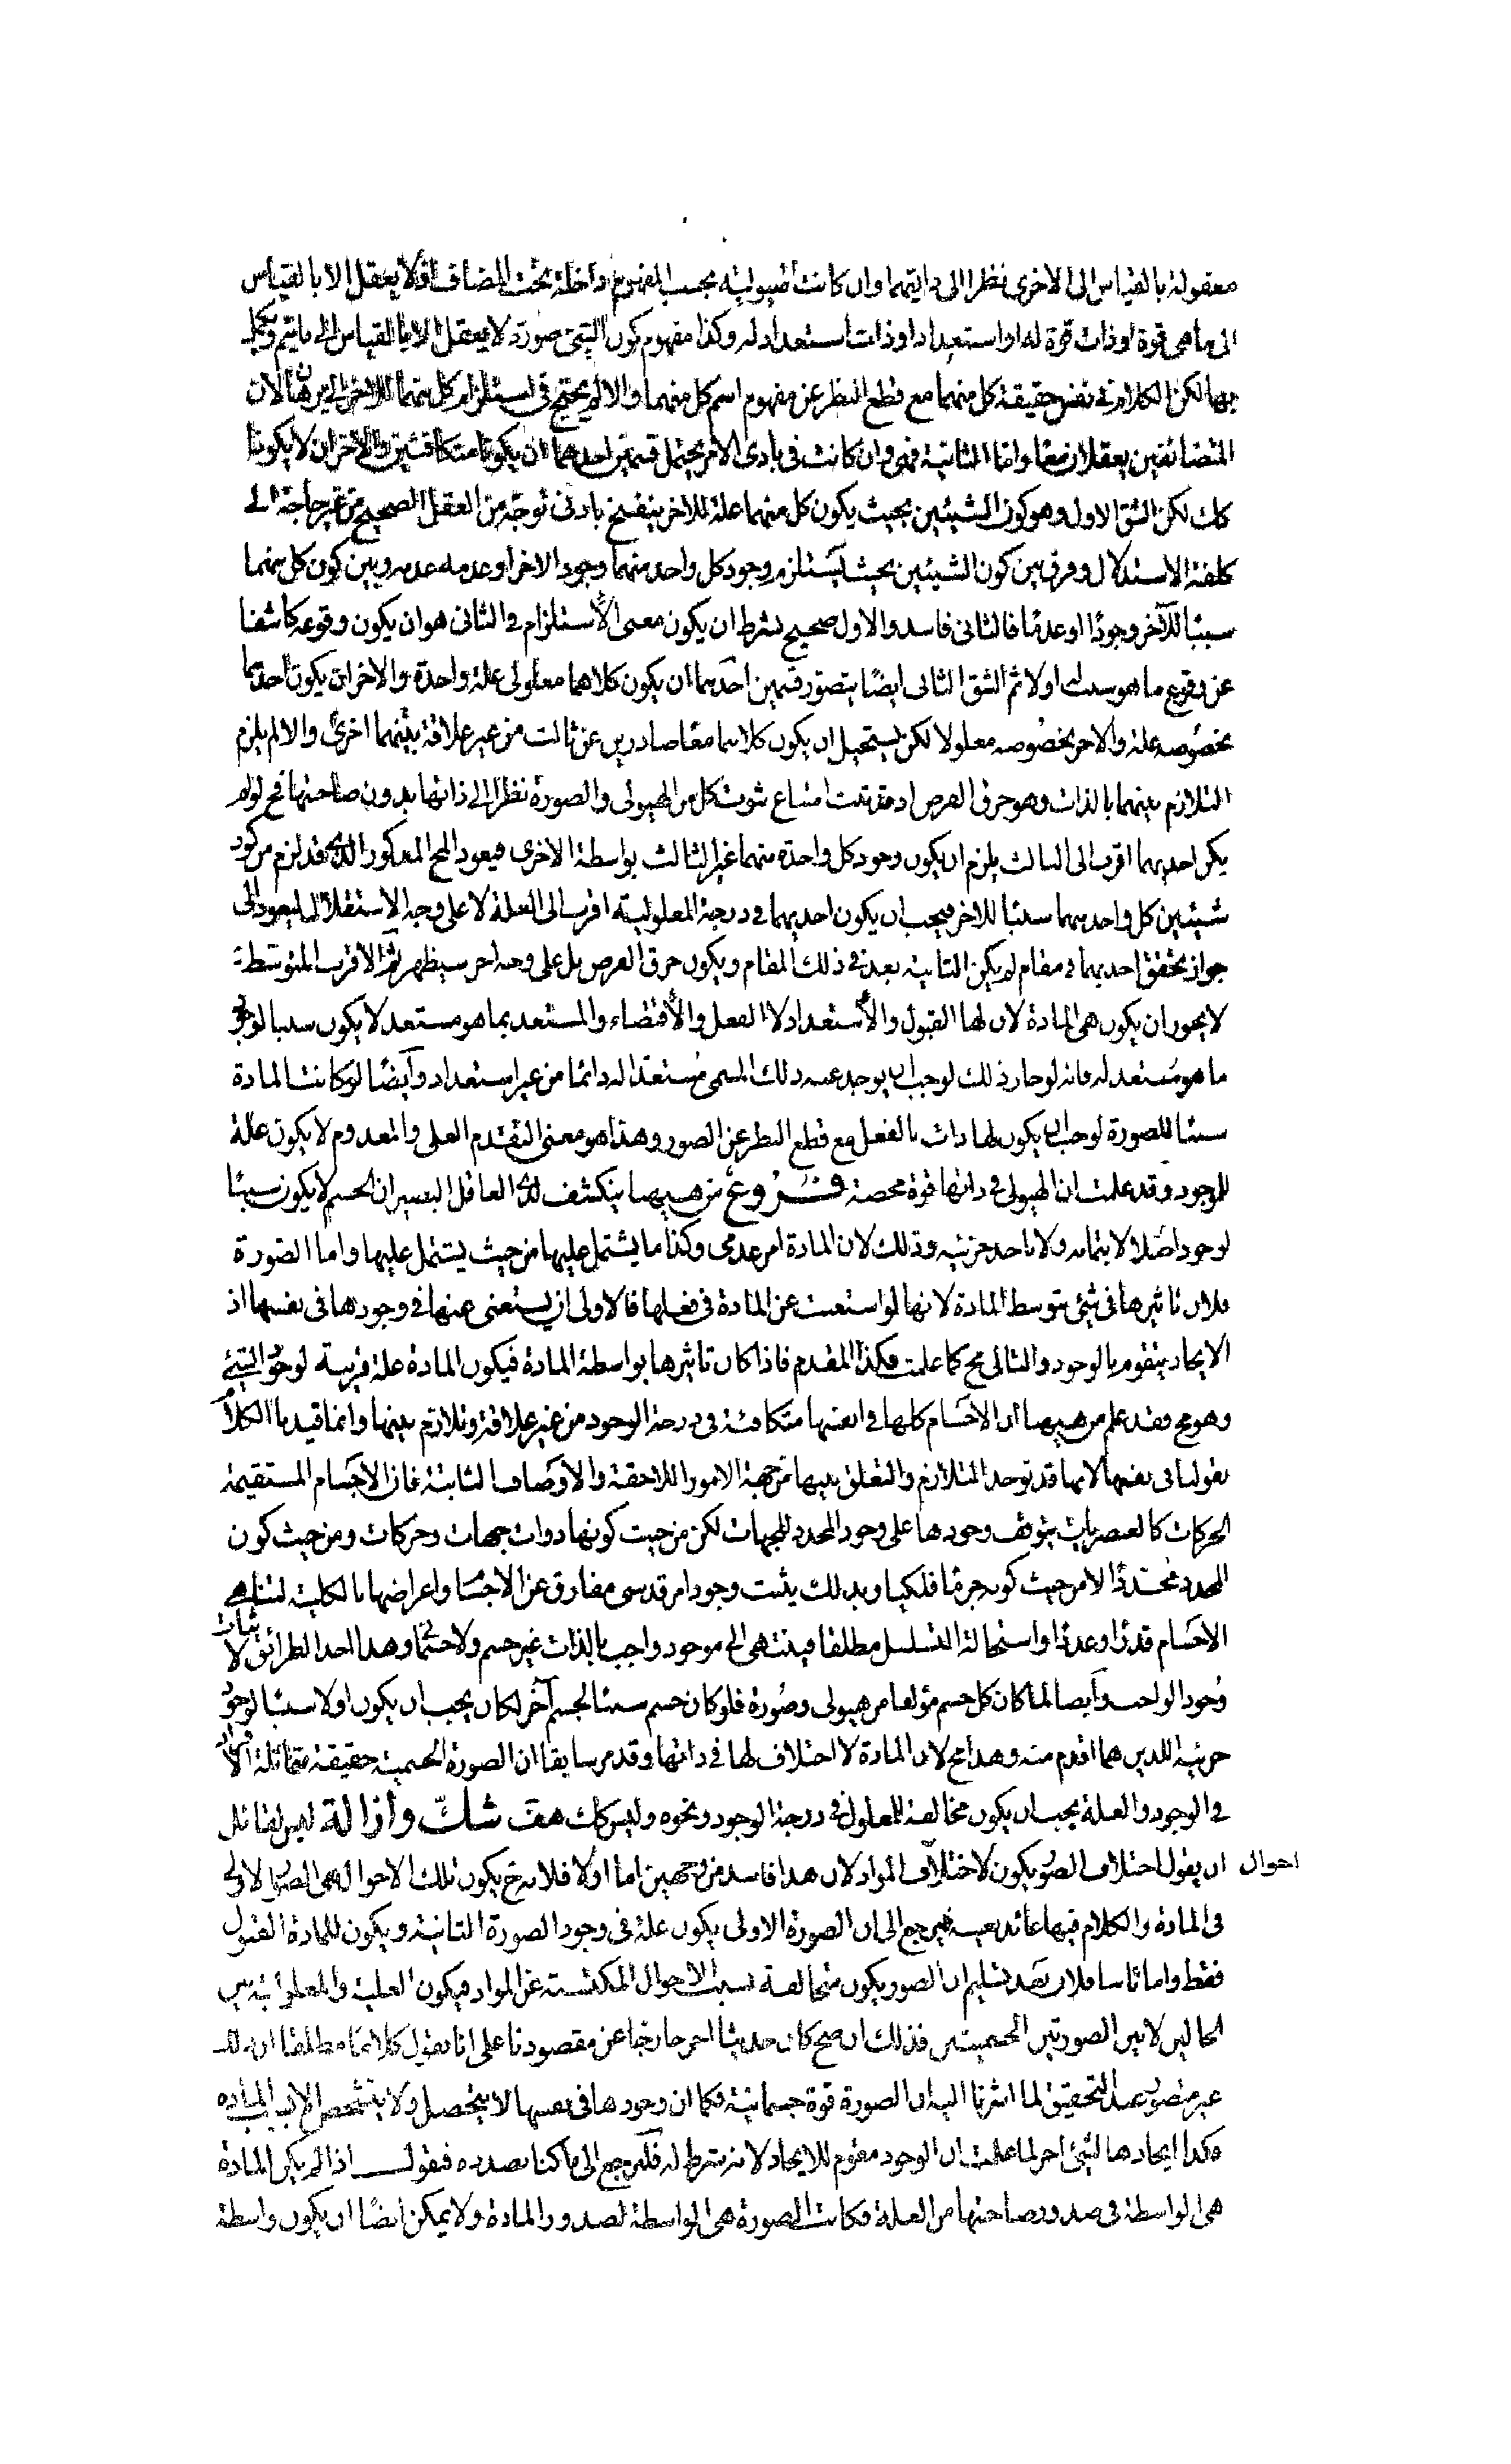 معقولة بالقياس الى الاخرى نظرا الى ذاتيهما وان كانت هيوليته بحسب المفهوم داخلة تحت المضاف فلا يعقل الا بالقياس
الى ما هى قوة او ذات قوة له او استعدادا او ذات استعداد له وكذا مفهوم كون الشئ صورة لا يعقل الا بالقياس الى ما يتم ويكمل
بها لكن الكلام فى نفس حقيقة كل منهما مع قطع النظر عن مفهوم اسم كل منهما والا لم يحتج فى استلزام كل منهما للاخر الى برهان لان
المتضائفين يعقلان معا واما الثانية فهى وان كانت فى بادى الامر يحتمل قسمين احدهما ان يكونا متكافئين والاخر ان لا يكونا
كك لكن الشق الاول وهو كون الشيئين بحيث يكون كل منهما علة للاخر ينفسخ بادنى توجه من العقل الصحيح من غير حاجة الى
كلفة الاستدلال وفرق بين كون الشيئين بحيث يستلزم وجود كل واحد منهما وجود الاخر او عدمه عدمه وبين كون كل منهما
سببا للآخر وجودا او عدما فالثانى فاسد والاول صحيح بشرط ان يكون معنى الاستلزام فى الثانى هو ان يكون وقوعه كاشفا
عن وقوع ما هو سببه اولا ثم الشق الثانى ايضا يتصور قسمين احدهما ان يكون كلاهما معلولى علة واحدة والاخر ان يكون احدهما
بخصوصه علة والاخر بخصوصه معلولا لكن يستحيل ان يكون كلاهما معا صادرين عن ثالث من غير علاقة بينهما اخرى والا لم يلزم
التلازم بينهما بالذات وهو خرق الفرض اذ قد ثبت امتناع ثبوت كل من الهيولى والصورة نظرا الى ذاتها بدون صاحبتها فح لو لم
يكن احديهما اقرب الى الثالث يلزم ان يكون وجود كل واحدة منهما عن الثالث بواسطة الاخرى فيعود المح المذكور الذى قد لزم من كون
شيئين كل واحد منهما سببا للاخر فيجب ان يكون احديهما فى درجة المعلولية اقرب الى العلة لا على وجه الاستقلال ليعود الى
جواز تحقق احديهما فى مقام لم يكن الثانية بعد فى ذلك المقام ويكون خرق الفرض بل على وجه اخر سيظهر ثم الاقرب المتوسطة
لا يجوز ان يكون هى المادة لان لها القبول والاستعداد لا الفعل والاقتضاء والمستعد بما هو مستعد لا يكون سببا لوجود
ما هو مستعد له فانه لو جاز ذلك لوجب ان يوجد عنه ذلك المسمى مستعدا له دائما من غير استعداد وايضا لو كانت المادة
سببا للصورة لوجب ان يكون لها ذات بالفعل مع قطع النظر عن الصور وهذا هو معنى التقدم العلى والمعدوم لا يكون علة
للموجود وقد علمت ان الهيولى فى ذاتها قوة محضة فروع من هيهنا ينكشف لدى العاقل البصير ان الجسم لا يكون سببا
لوجود اصلا لا بتمامه ولا باحد جزئيه وذلك لان المادة امر عدمى وكذا ما يشتمل عليها من حيث يشتمل عليها واما الصورة
فلان تاثيرها فى شئ بتوسط المادة لانها لو استغنت عن المادة فى فعلها فالاولى ان يستغنى عنها فى وجودها فى نفسها اذ
الايجاد يتقوم بالوجود والتالى مح كما علمت فكذا المقدم فاذا كان تاثيرها بواسطة المادة فيكون المادة علة قريبة لوجود الشئ
وهو مح وقد علم من هيهنا ان الاجسام كلها فى انفسها متكافئة فى درجة الوجود من غير علاقة وتلازم بينها وانما قيدنا الكلام
بقولنا فى نفسها لانها قد توجد التلازم والتعلق بينها من جهة الامور اللاحقة والاوصاف الثابتة فان الاجسام المستقيمة
الحركات كالعنصريات يتوقف وجودها على وجود المحدد للجهات لكن من حيث كونها ذوات جهات وحركات ومن حيث كون
المحدد محددا لا من حيث كونه جرما فلكيا وبذلك يثبت وجود امر قدسى مفارق عن الاجسام واعراضها بالكلية لتناهى
الاجسام قدرا وعددا واستحالة التسلسل مطلقا فينتهى الى موجود واجب بالذات غير جسم ولا جسمانى وهذا احد الطرائق لاثبات
وجود الواجب وايضا لما كان كل جسم مؤلفا من هيولى وصورة فلو كان جسم سببا لجسم آخر لكان يجب ان يكون اولا سببا لوجود
جزئيه اللذين هما اقدم منه وهذا مح لان المادة لا اختلاف لها فى ذاتها وقد مر سابقا ان الصورة الجسمية حقيقة متماثلة الافراد
فى الوجود والعلة يجب ان يكون مخالفة للمعلول فى درجة الوجود ونحوه وليس كك هف شك وازالة ليس لقائل
ان يقول اختلاف الصور يكون لاختلاف احوال المواد لان هذا فاسد من وجهين اما اولا فلانه ح يكون تلك الاحوال هى الصور الاولى
فى المادة والكلام فيها عائد بعينه فيرجع الى ان الصورة الاولى يكون علة فى وجود الصورة الثانية ويكون للمادة القبول
فقط واما ثانيا فلان بعد تسليم ان الصور يكون متخالفة بسبب الاحوال المكتسبة عن المواد فيكون العلية والمعلولية بين
الحالين لا بين الصورتين الجسميتين فذلك ان صح كان حديثا اخر خارجا عن مقصودنا على انا نقول كلاما مطلقا ان ذلك
غير متصور عند التحقيق لما اشرنا اليه ان الصورة قوة جسمانية فكما ان وجودها فى نفسها لا يتحصل ولا يتشخص الا بسبب المادة
فكذا ايجادها لشئ اخر لما علمت ان الوجود مقوم للايجاد لانه شرط له فلنرجع الى ما كنا بصدده فنقول اذا لم يكن المادة
هى الواسطة فى صدور صاحبتها من العلة فكانت الصورة هى الواسطة لصدور المادة ولا يمكن ايضا ان يكون واسطة